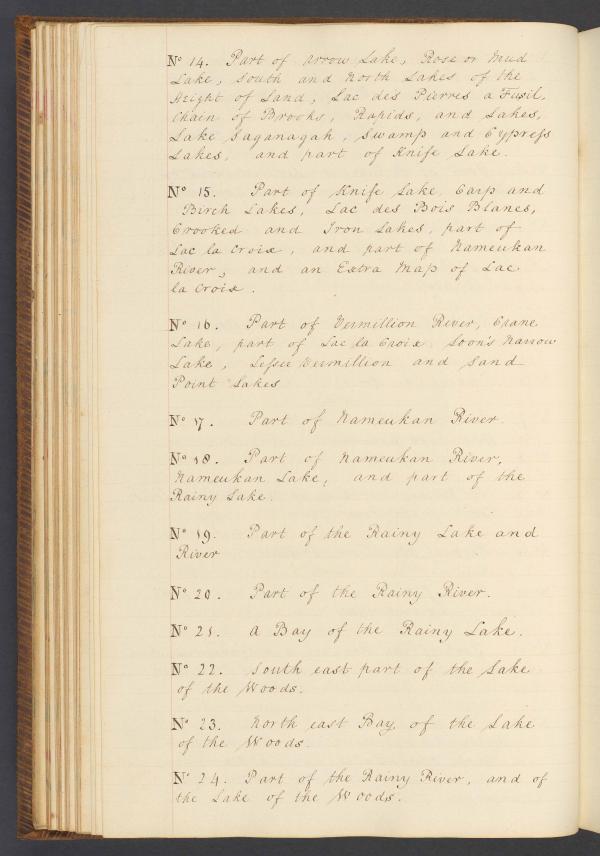 Nº 14. Part of Arrow Lake, Rose or Mud
Lake, South and North Lakes of the
Height of Land, Lac des Pierres a Fusil,
Chain of Brooks, Rapids, and Lakes,
Lake Saganagah, Swamp and Cypreſs
Lakes, and part of Knife Lake.
Nº 15. Part of Knife Lake, Carp and
Birch Lakes, Lac des Bois Blancs,
Crooked and Iron Lakes, part of
Lac la Croix, and part of Nameukan
River, and an Extra Map of Lac
la Croix.
Nº 16. Part of Vermillion River, Crane
Lake, part of Lac la Croix, Loon's Narrow
Lake, Leſser Vermillion and Sand
Point Lakes
Nº 17. Part of Nameukan River.
Nº 18. Part of Nameukan River,
Nameukan Lake, and part of the
Rainy Lake.
Nº 19. Part of the Rainy Lake and
River
Nº 20. Part of the Rainy River.
Nº 21. A Bay of the Rainy Lake.
Nº 22. South east part of the Lake
of the Woods.
Nº 23. North east Bay, of the Lake
of the Woods.
Nº 24. Part of the Rainy River, and of
the Lake of the Woods.